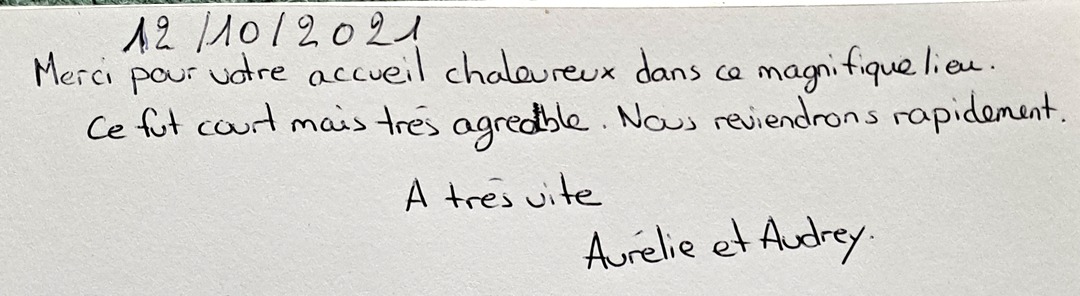 12/10/2021
Merci pour votre accueil chaleureux dans ce magnifique lieu.
Ce fut court mais très agréable. Nous reviendrons rapidement.
A très vite
Aurélie et Audrey.